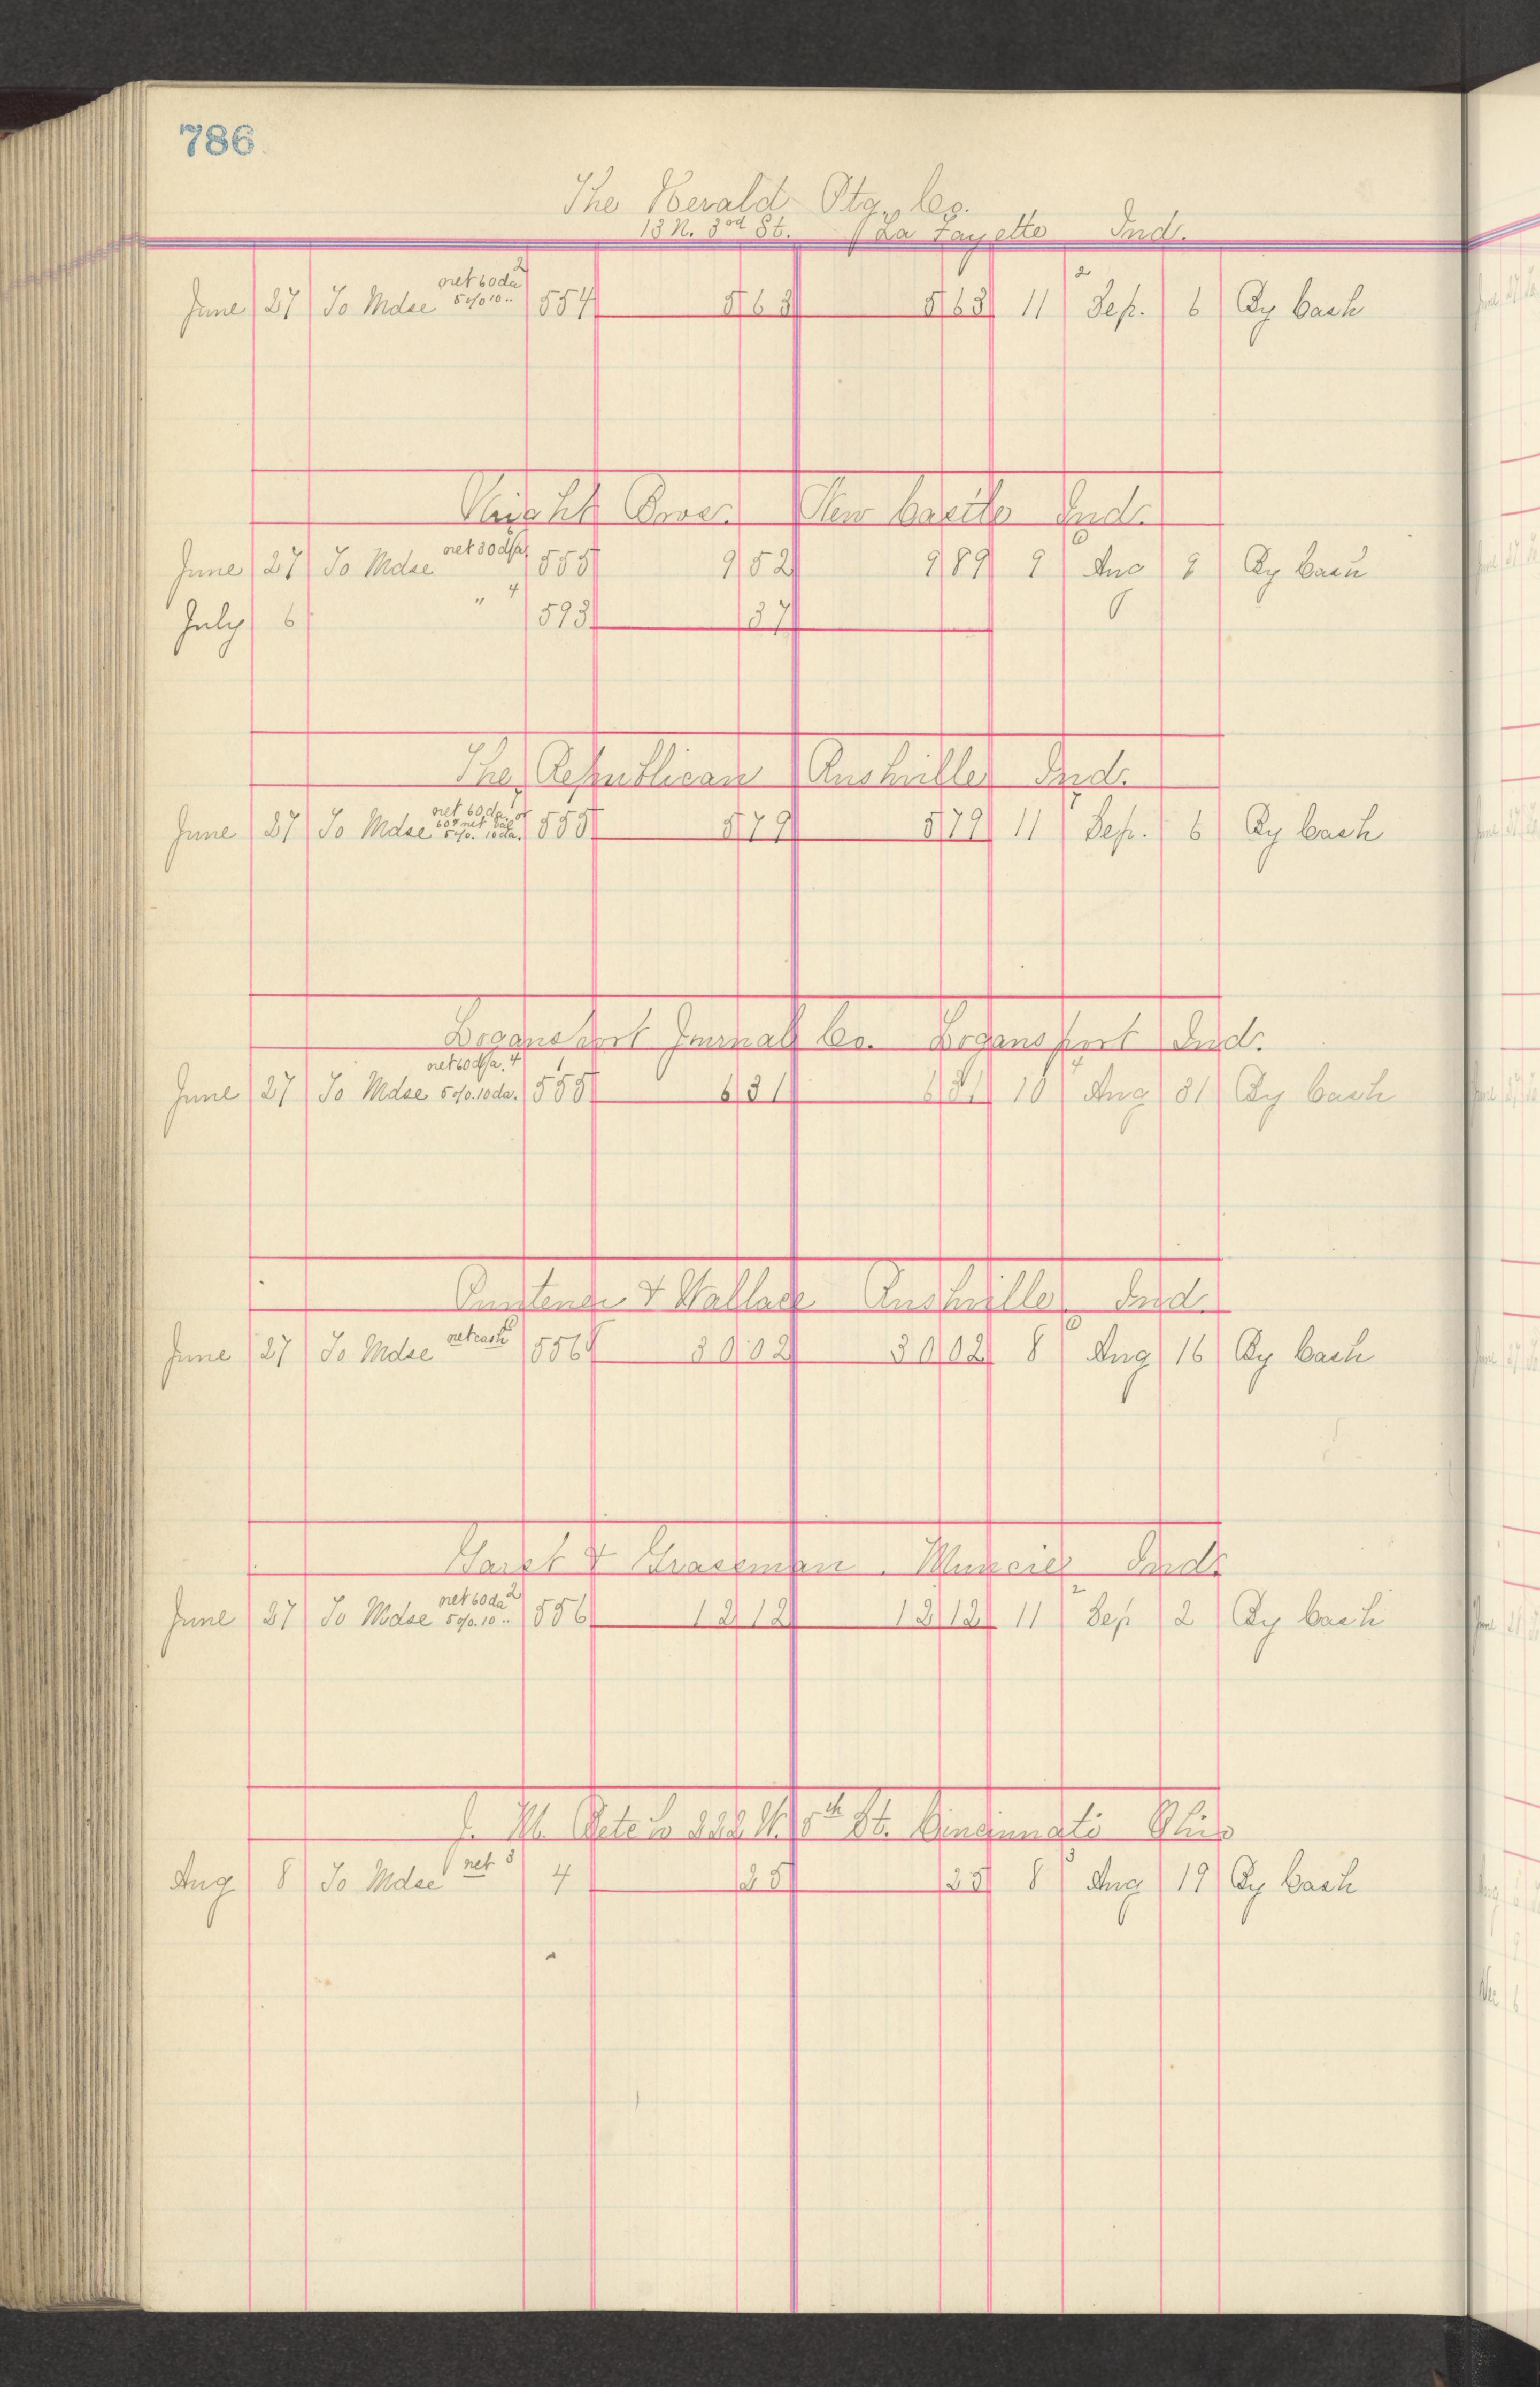 786
The Herald Ptg. Co.
13 N. 3rd St. La Fayette Ind.
June 27 To Mdse net 60 da 2 5% 10 " 554 5 63 5 63 11 2 Sep. 6 By Cash
Knight Bros. New Castle Ind.
June 27 To Mdse net 30 d/a 555 9 52 9 89 9 6 Aug 9 By Cash
July 6 " 4 593 37
The Republican Rushville Ind.
June 27 To Mdse net 60 da. or 60 net bal 5%. 10 da. 555 5 79 5 79 11 7 Sep. 6 By Cash
Logansport Journal Co. Logansport Ind.
June 27 To Mdse net 60 d/a. 4 5%. 10 da. 555 6 31 6 31 10 4 Aug 31 By Cash
& Wallace Rushville Ind.
June 27 To Mdse net cash 6 556 30 02 30 02 8 6 Aug 16 By Cash
& Muncie Ind.
June 27 To Mdse net 60 da 2 5%. 10 " 556 12 12 12 12 11 2 Sep 2 By Cash
5th St. Cincinnati Ohio
Aug 8 To Mdse net 3 4 25 25 8 3 Aug 19 By Cash